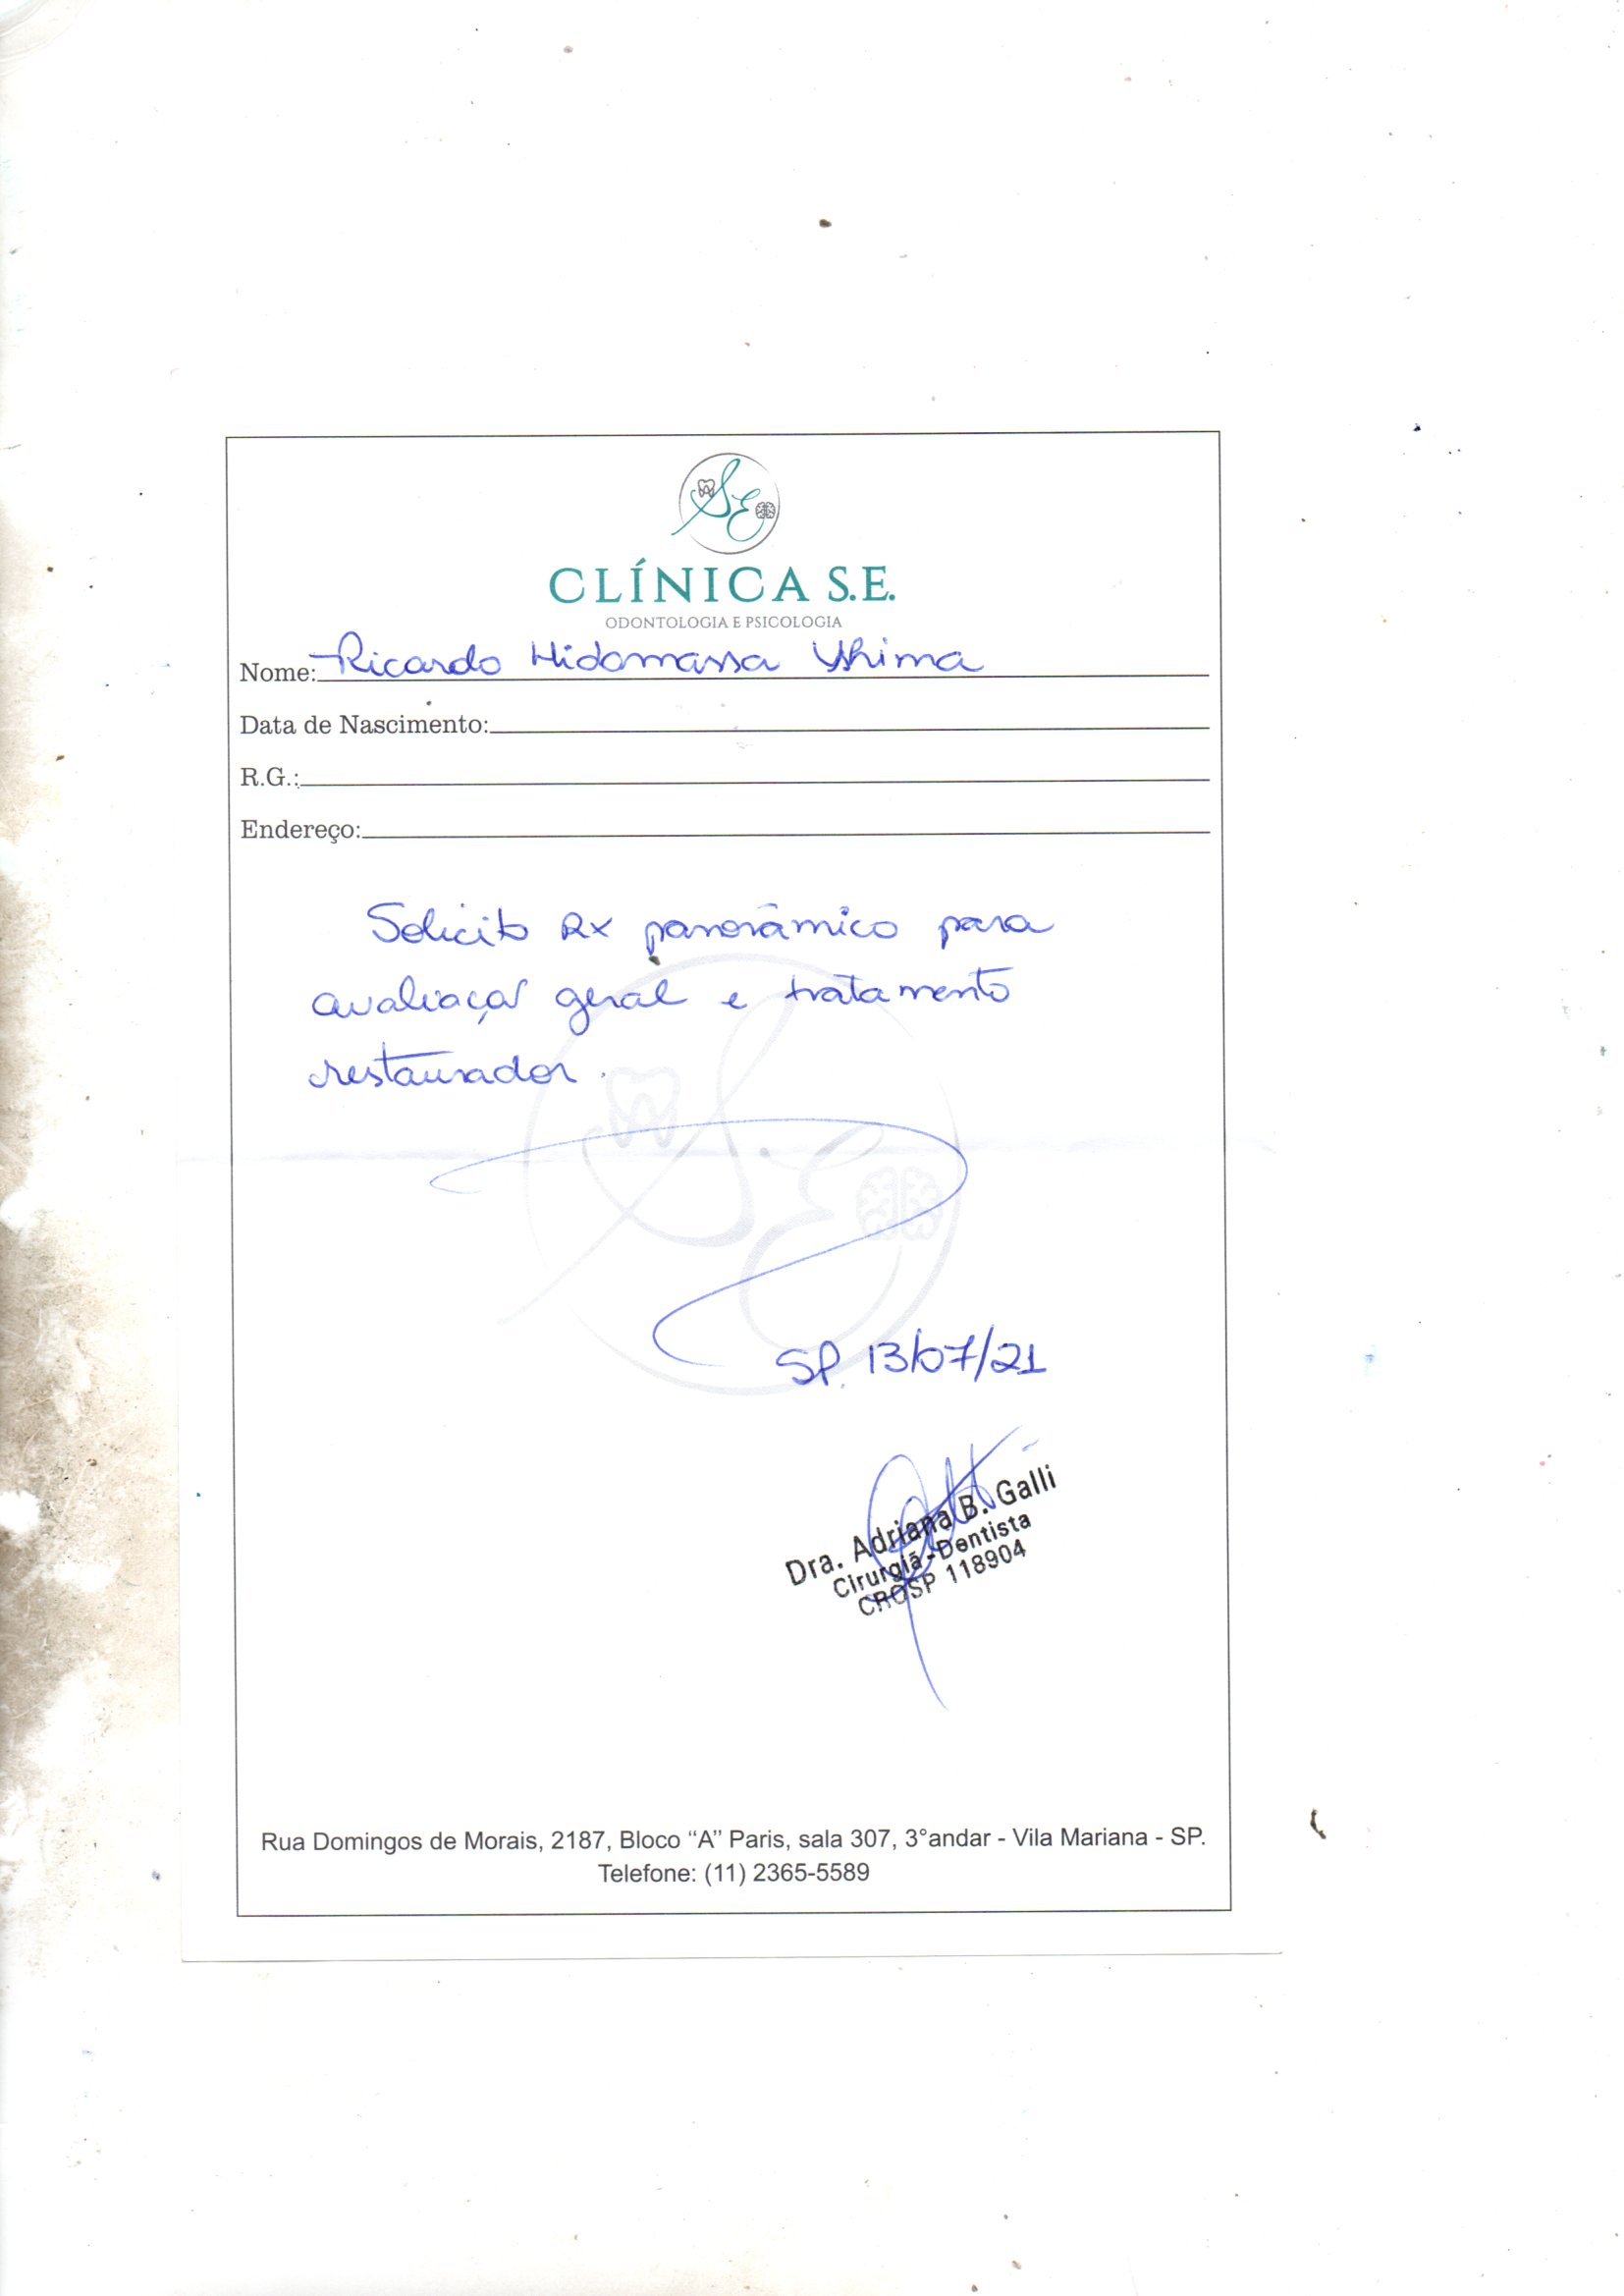 CLÍNICA S.E.
ODONTOLOGIA E PSICOLOGIA
Nome: Ricardo Hidomassa
Data de Nascimento:
R.G.:
Endereço:
Solicito Rx panorâmico para
avaliaçao geral e tratamento
restaurador.
SP. 13/07/21
Dra. Adriana B. Galli
Cirurgiã-Dentista
CROSP 118904
Rua Domingos de Morais, 2187, Bloco “A” Paris, sala 307, 3°andar - Vila Mariana - SP.
Telefone: (11) 2365-5589